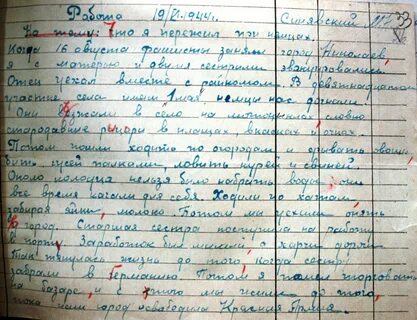 Работа 19/VI 1944г. Синявский М.
На тему: Что я пережил при немцах.
Когда 16 августа фашисты заняли город Николаев,
я с матерью и двумя сестрами эвакуировались.
Отец уехал вместе с райкомом. В девятнадцатом
участке села имени 1 мая немцы нас догнали.
Они въехали в село на мотоциклах словно
стародавние рыцари в плащах, в касках и очках.
Потом пошли ходить по огородам и срывать овощи
бить гусей палками, ловить курей и свиней.
Около колодца нельзя было набрать воды, они
все время качали для себя. Ходили по хатам
забирая яйца, молоко. Потом мы уехали опять
в город. Старшая сестра поступила на работу
в порту. Заработок был малый, а харчи дорогие
Так тянулась жизнь до того, когда сестру
забрали в Германию. Потом я пошел торговать
на базаре, и с этого мы жили до того,
пока наш город освободила Красная Армия.